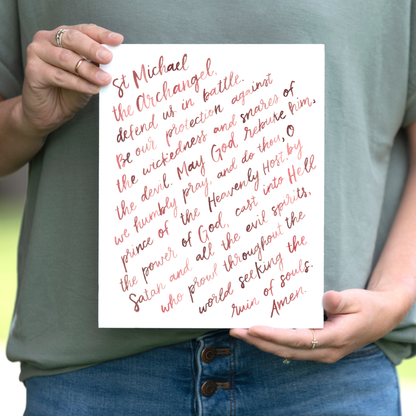 St Michael
the Archangel,
defend us in battle.
Be our protection against
the wickedness and snares of
the devil. May God rebuke him,
we humbly pray, and do thou, O
prince of the Heavenly Host, by
the power of God, cast into Hell
Satan and all the evil spirits,
who prowl throughout the
world seeking the
ruin of souls.
Amen.